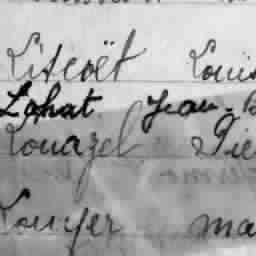 Liscoët Louis
Lohat Jean-B
Louazel Pie
Louyer ma